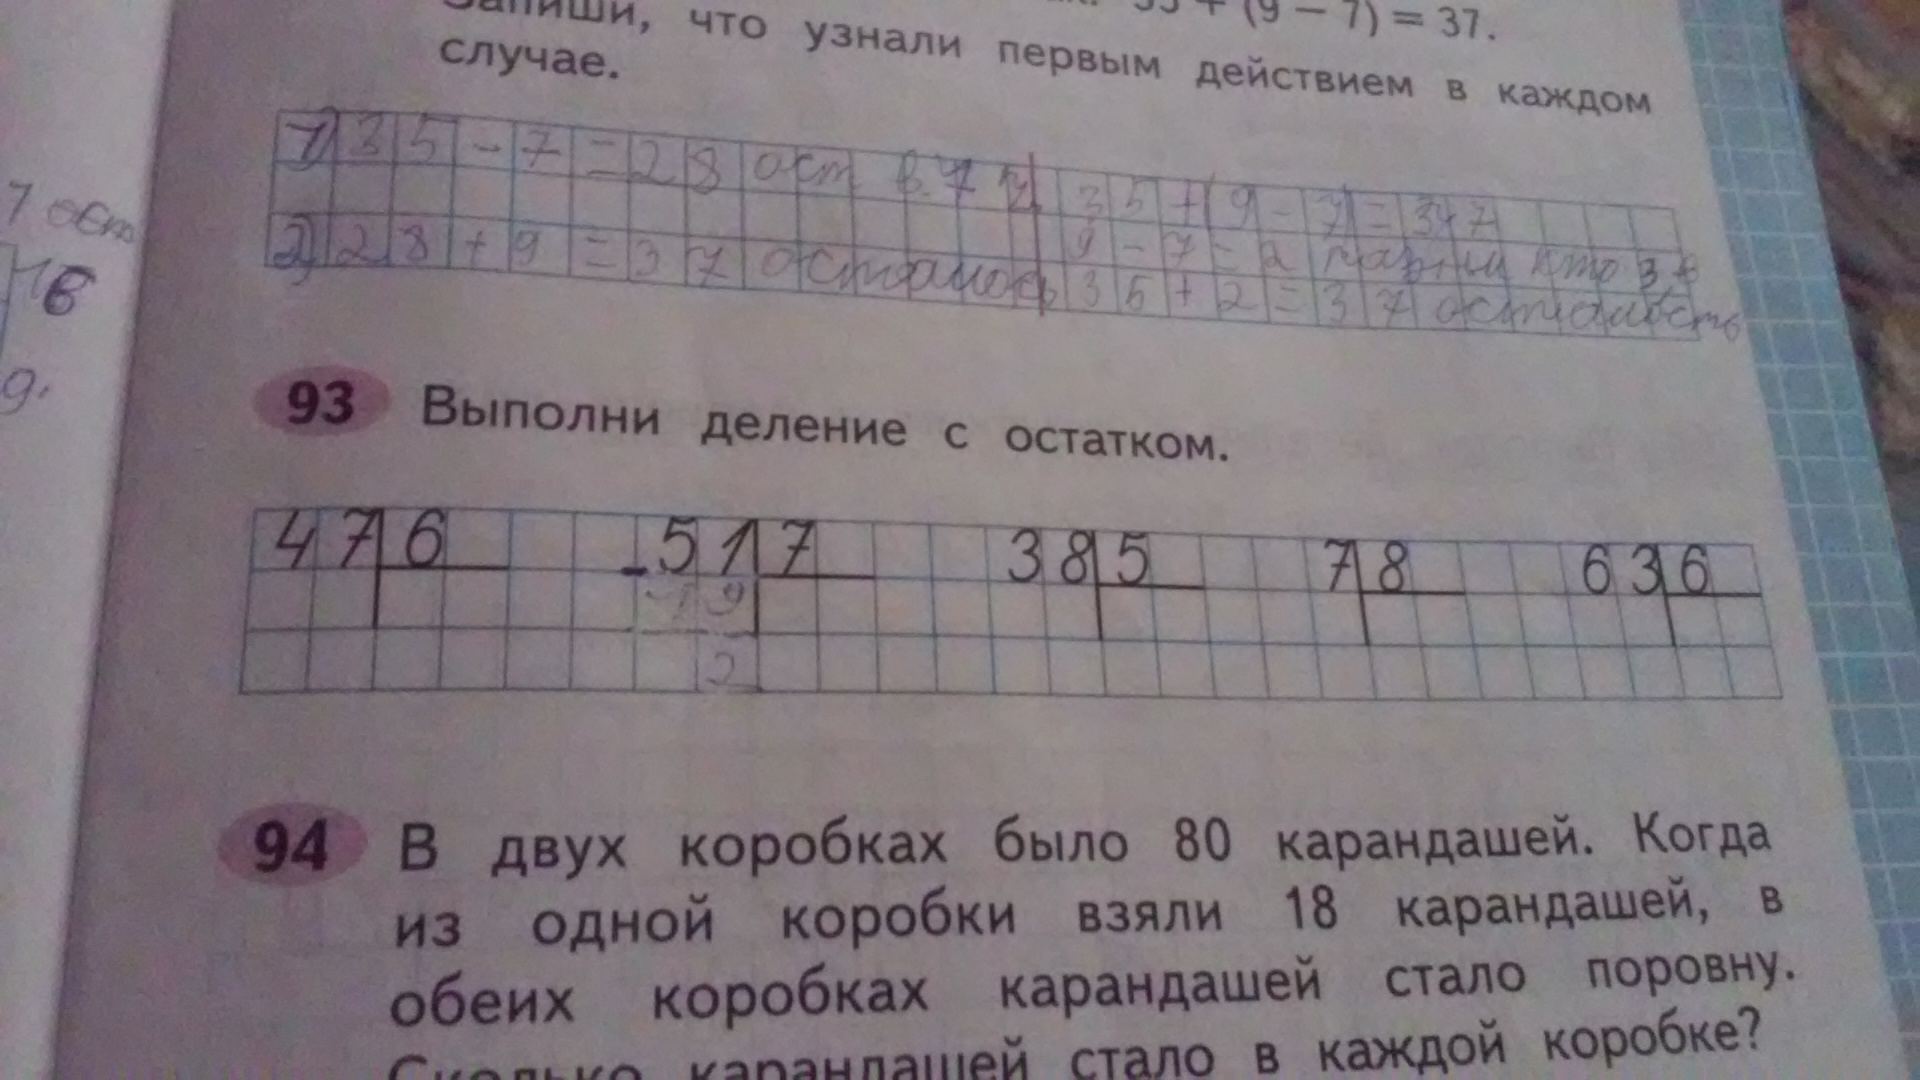 (9 − 7) = 37.
Запиши, что узнали первым действием в каждом
случае.
1) 35 − 7 = 28 ост в
35 + (9 − 7) = 347
9 − 7 = 2
2) 28 + 9 = 37 осталось
35 + 2 = 37 осталось
7 ост
93 Выполни деление с остатком.
47 6 − 51 7 38 5 7 8 63 6
9
2
94 В двух коробках было 80 карандашей. Когда
из одной коробки взяли 18 карандашей, в
обеих коробках карандашей стало поровну.
Сколько карандашей стало в каждой коробке?